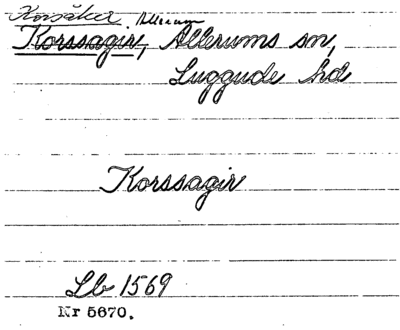 Korsåker, Allerum
Korssagir, Allerums sn,
Luggude hd
Korssagir
Lb 1569
Nr 5670.